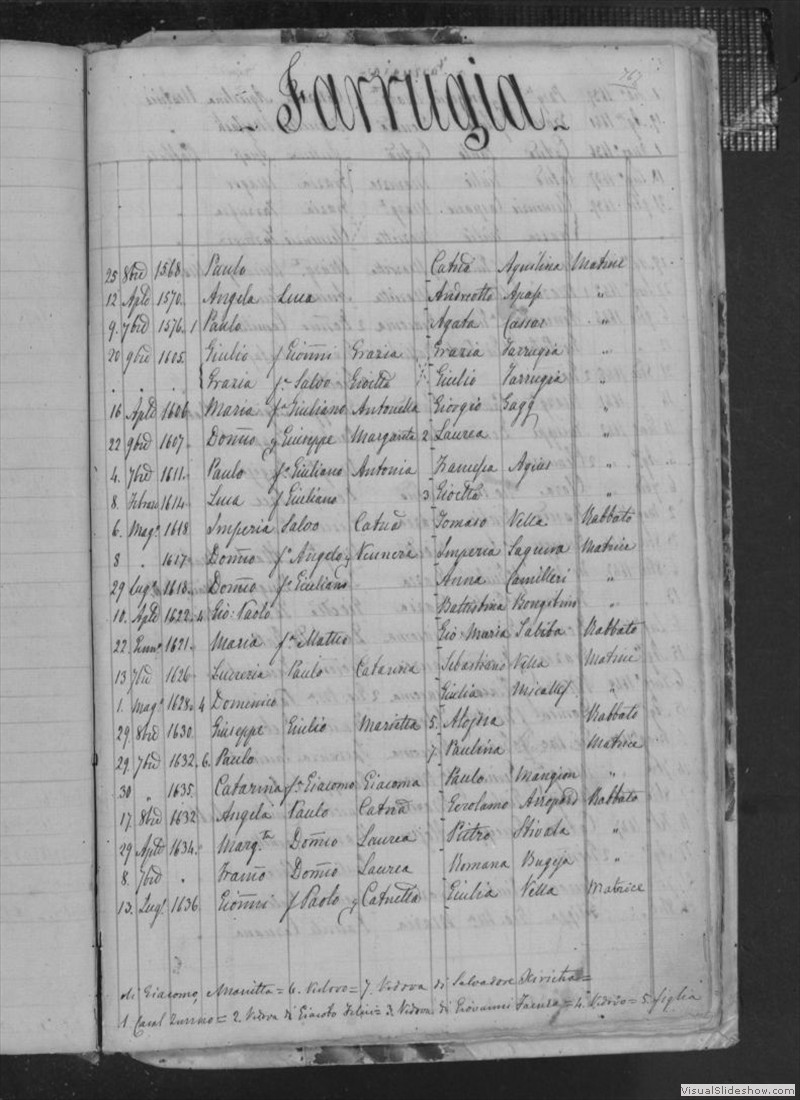 Farrugia
25 8bre 1568 Paulo Catnā Aquilina Matrice
12 Aple 1570. Angela Luca Andreotto Apap "
9. 7bre 1576. 1 Paulo Agata Cassar "
20 9bre 1605. Giulio fu Gionni Grazia Grazia Farrugia "
. . . Grazia fu Salvo Gioetta Giulio Farrugia "
16 Aple 1606 Maria fu Giuliano Antonella Giorgio Gagg "
22 9bre 1607. Domco Giuseppe Margarita 2 Laurea "
4. 7bre 1611. Paulo fu Giuliano Antonia Agius "
8. 1614. Luca fu Giuliano 3 Gioetta "
6. Magº 1618 Imperia Salvo Catnā Tomaso Vella Rabbato
8 " 1617 Domco fu Angelo Vennera Imperia Saguna Matrice
29 Lugº 1618. Domco fu Giuliano Anna Camilleri "
10. Aple 1622. 4 Gio: Paolo Battistina "
22. 1621. Maria fu Matteo Gio Maria Rabbato
13 7bre 1626 Lucrezia Paulo Catarina Sebastiano Vella Matrice
1. Magº 1628. 4 Domenico Giulia Micallef "
29. 8bre 1630. Giuseppe Giulio Marietta 5. Alojsia Rabbato
29. 7bre 1632. 6. Paulo 7. Paulina Matrice
30 " 1635. Catarina fu Giacomo Giacoma Paulo Mangion "
17. 8bre 1632 Angela Paulo Catnā Gerolamo Rabbato
29 Aple 1634. Margta Domco Laurea Pietro Stivala "
8. 7bre " Domco Laurea Romana Bugeja "
13. Lugº 1636. Gionni fu Paolo Catnetta Giulia Vella Matrice
di Giacomo, Marietta = 6. Vedovo = 7. Vedova di Salvadore
1. Casal = 2. Vedova di = 3. Vedova di Giovanni = 4. Vedovo = 5. figlia
VisualSlideshow.com